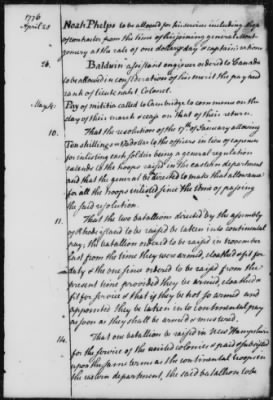 1776
April 20 Noah Phelps to be allowed for his services including days
of contract from the time of his joining general mont-
gomery at the rate of one dollar pr day & captains rations
26. Baldwin assistant engineer ordered to Canada
to be allowed in consideration of his merit the pay and
rank of lieutenant Colonel.
May 4. Pay of militia called to Cambridge to commence on the
day of their march & cease on that of their return.
10. That the resolution of the 17th of January allowing
Ten shillings or 1 1/3 dollar to the officers in lieu of expences
for enlisting each soldier being a general regulation
extends to the troops raised in the eastern department
and that the general be directed to make that allowance
for all the troops enlisted since the time of passing
the said resolution.
11. That the two batallions directed by the assembly
of Rhode island to be raised be taken into continental
pay; the batallion ordered to be raised in November
last from the time they were armed, cloathed & fit for
duty & the one since ordered to be raised from the
present time provided they be armed, cloathed &
fit for service & that if they be not so armed and
appointed they be taken into Continental pay
as soon as they shall be armed & mustered.
14. That one batallion be raised in New Hampshire
for the service of the united colonies & paid & subsisted
upon the same terms as the continental troops in
the eastern department, the said batallion to be